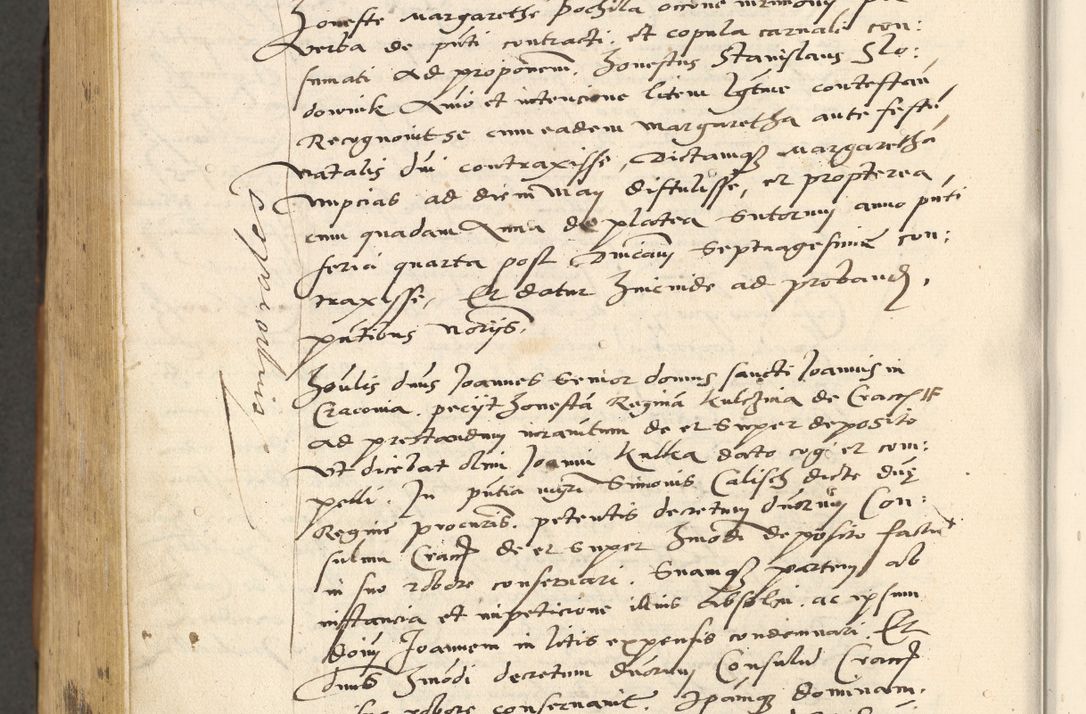 Honeste Margarethe Pochila occone mrimonij per
verba de pnti contracti et copula carnali con:
sumati ad proponem. Honestus Stanislaus Slo:
downik Animo et intencione litem lgtime contestan
Recognovit se cum eadem Margaretha ante feste
Natalis dni contraxisse, Dictamqz Margaretha
Nupcias ad diem Maij distulisse, et propterea
cum quadam Anna de platea Sutorum anno pnti
feria quarta post Dnicam Septuagesime con:
traxisse, Et datur hincinde ad proband,
pntibus Notijs.
Cognitio
Hōlis dnus Joannes Senior domus sancti Joannis in
Cracovia petijt Honestā Reginā Kulczina de Crac
ad prestandum iuramtum de et super deposito
ut dicebat olim Joanni Kulka dato cog et com:
pelli. In pntia mgri Simonis Calisch dicte dne
Regine procuris petentis decretum dnorum Con:
sulum Crac de et super hmodi deposito factū
in suo robore conservari. Suamqz partem ab
instancia et impeticione illius absolvi, ac ipsum
dnum Joannem in litis expensis condemnari. Et
Dnus hmodi decretum dnorum Consulū Crac
robore conservavit. Ipamqz dominam